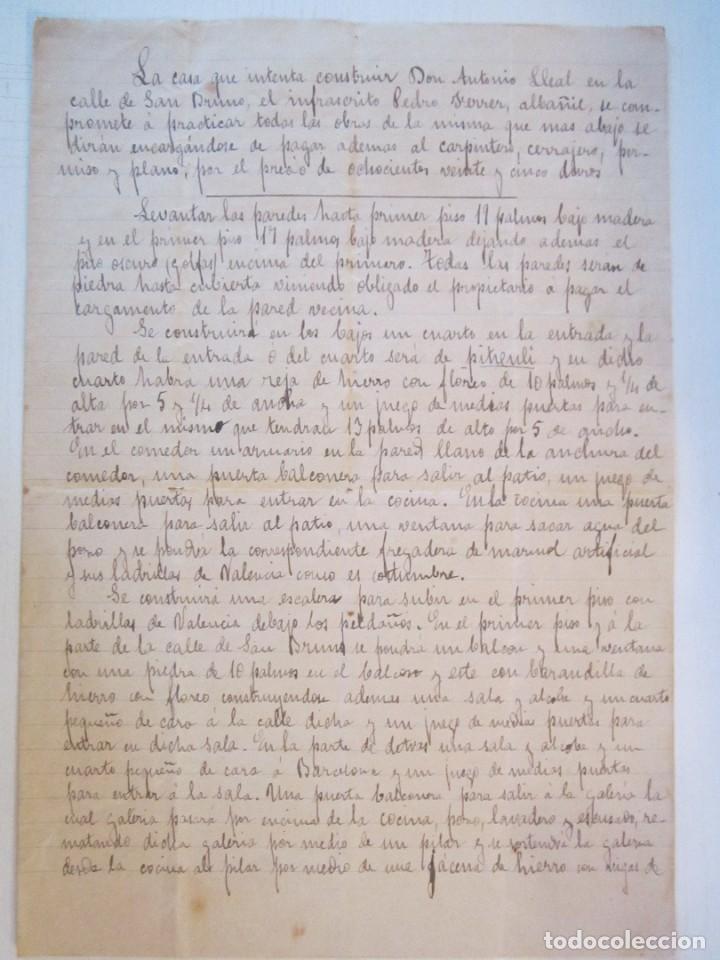 La casa que intenta construir Don Antonio Lleal en la
calle de San Bruno, el infrascrito Pedro Ferrer, albañil, se com-
promete á practicar todas las obras de la misma que mas abajo se
dirán encargándose de pagar ademas al carpintero, cerrajero, per-
miso y plano, por el precio de ochocientos veinte y cinco duros
Levantar las paredes hasta primer piso 17 palmos bajo madera
y en el primer piso 17 palmos bajo madera dejando ademas el
piso oscuro (golfas) encima del primero. Todas las paredes serán de
piedra hasta cubierta viniendo obligado el propietario á pagar el
cargamento de la pared vecina.
Se construirá en los bajos un cuarto en la entrada y la
pared de la entrada ó del cuarto será de pitxulí y en dicho
cuarto habra una reja de hierro con floreo de 10 palmos y 1/4 de
alta por 5 y 1/4 de ancha y un juego de medias puertas para en-
trar en el mismo que tendran 13 palmos de alto por 5 de ancho.
En el comedor un armario en la pared llano de la anchura del
comedor, una puerta balconera para salir al patio, un juego de
medias puertas para entrar en la cocina. En la cocina una puerta
balconera para salir al patio, una ventana para sacar agua del
pozo y se pondrá la correspondiente fregadera de marmol artificial
y sus ladrillas de Valencia como es costumbre.
Se construirá una escalera para subir en el primer piso con
ladrillas de Valencia debajo los peldaños. En el primer piso y á la
parte de la calle de San Bruno se pondrá un balcon y una ventana
con una piedra de 10 palmos en el balcon y este con barandilla de
hierro con floreo construyendose ademas una sala y alcoba y un cuarto
pequeño de cara á la calle dicha y un juego de media puertas para
entrar en dicha sala. En la parte de detras una sala y alcoba y un
cuarto pequeño de cara á Barcelona y un juego de medias puertas
para entrar á la sala. Una puerta balconera para salir á la galeria la
cual galeria pasará por encima de la cocina, pozo, lavadero y escusado, re-
matando dicha galeria por medio de un pilar y se sostendrá la galeria
desde la cocina al pilar por medio de una jácena de hierro con vigas de
todocoleccion.net